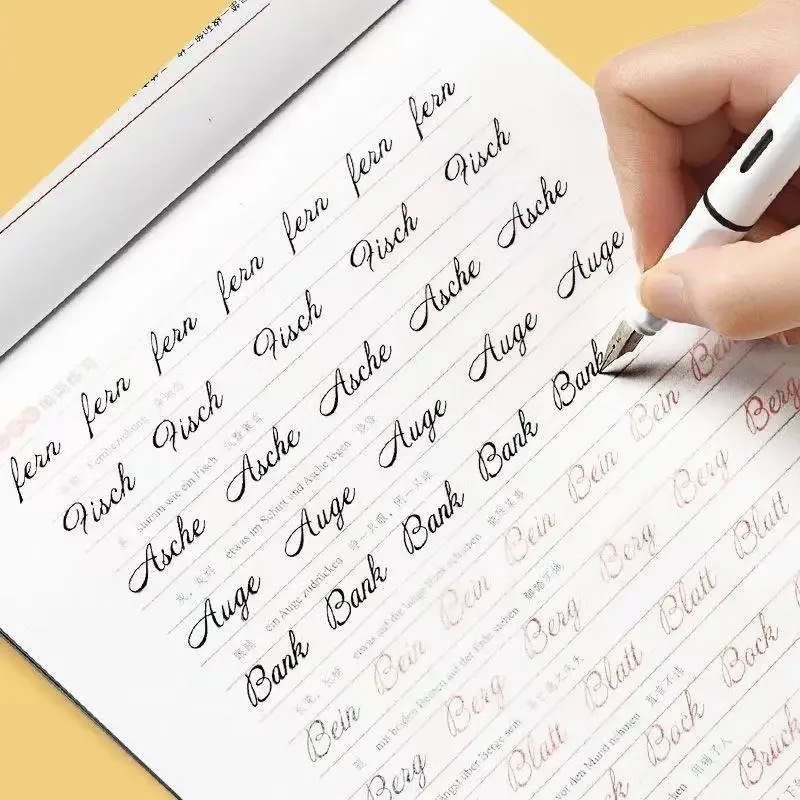 fern fern fern fern fern fern fern
Fernbeziehung
Fisch Fisch Fisch Fisch Fisch
stumm wie ein Fisch 沉默寡言
Asche Asche Asche Asche Asche
etwas in Schutt und Asche legen 烧毁
Auge Auge Auge Auge Auge
ein Auge zudrücken 睁一只眼,闭一只眼
Bank Bank Bank Bank Bank
etwas auf die lange Bank schieben
Bein Bein Bein Bein Bein Bein
mit beiden Beinen auf der Erde stehen 脚踏实地
Berg Berg Berg Berg Berg
längst über Berge sein
Blatt Blatt Blatt Blatt
vor den Mund nehmen 直言不讳
Bock Bock Bock
Bruck